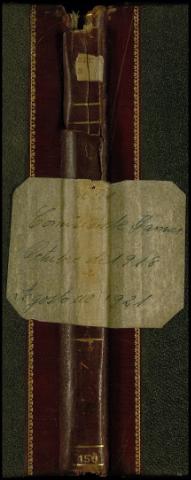 Comision de
Octubre de 1918
a
Agosto de 1921
150